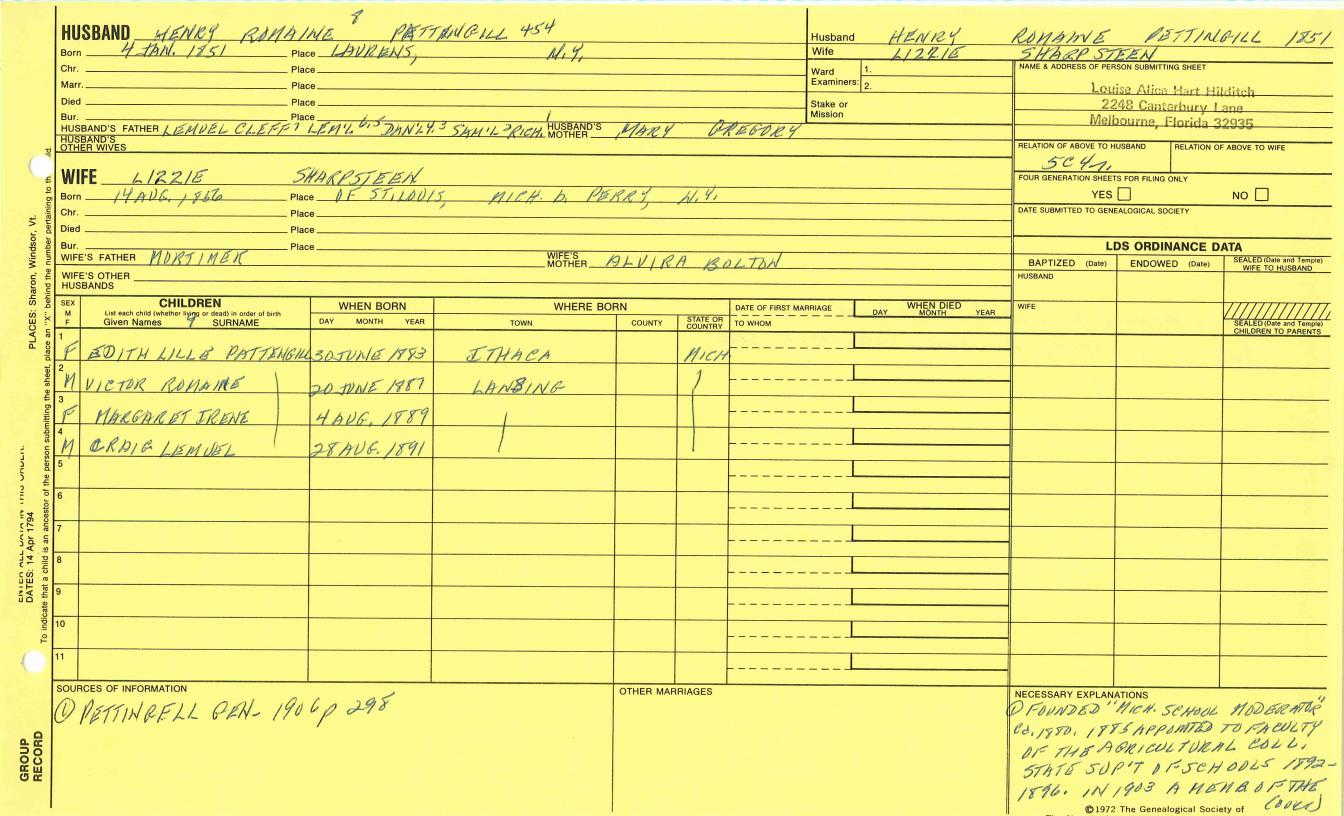 8
HUSBAND HENRY ROMAINE PATTENGILL 454
Born 4 JAN. 1851 Place LAURENS, N.Y.
Chr. Place
Marr. Place
Died Place
Bur. Place
HUSBAND'S FATHER LEMUEL CLEFF7 LEM'L 6,5 DAN'L4,3 SAM'L2 RICH. HUSBAND'S MOTHER MARY GREGORY
HUSBAND'S OTHER WIVES
Husband HENRY ROMAINE PETTINGILL 1851
Wife LIZZIE SHARPSTEEN
Ward Examiners: 1.
2.
Stake or Mission
NAME & ADDRESS OF PERSON SUBMITTING SHEET
Louise Alice Hart Hilditch
2248 Canterbury Lane
Melbourne, Florida 32935
RELATION OF ABOVE TO HUSBAND RELATION OF ABOVE TO WIFE
5C4r.
FOUR GENERATION SHEETS FOR FILING ONLY
YES NO
DATE SUBMITTED TO GENEALOGICAL SOCIETY
WIFE LIZZIE SHARPSTEEN
Born 14 AUG. 1856 Place OF ST. LOUIS, MICH. b. PERRY, N.Y.
Chr. Place
Died Place
Bur. Place
WIFE'S FATHER MORTIMER WIFE'S MOTHER ALVIRA BOLTON
WIFE'S OTHER HUSBANDS
LDS ORDINANCE DATA
BAPTIZED (Date) ENDOWED (Date) SEALED (Date and Temple) WIFE TO HUSBAND
HUSBAND
WIFE
SEALED (Date and Temple) CHILDREN TO PARENTS
SEX M F CHILDREN WHEN BORN WHERE BORN DATE OF FIRST MARRIAGE WHEN DIED
List each child (whether living or dead) in order of birth
Given Names 9 SURNAME DAY MONTH YEAR TOWN COUNTY STATE OR COUNTRY TO WHOM DAY MONTH YEAR
1 F EDITH LILLE PATTENGILL 30 JUNE 1883 ITHACA MICH
2 M VICTOR ROMAINE 20 JUNE 1887 LANSING
3 F MARGARET IRENE 4 AUG. 1889
4 M CRAIG LEMUEL 28 AUG. 1891
5
6
7
8
9
10
11
SOURCES OF INFORMATION
① PETTINGELL GEN- 1906 p 298
OTHER MARRIAGES
NECESSARY EXPLANATIONS
① FOUNDED "MICH. SCHOOL MODERATOR"
Co. 1880. 1885 APPOINTED TO FACULTY
OF THE AGRICULTURAL COLL.
STATE SUP'T OF SCHOOLS 1892-
1896. IN 1903 A MEMB OF THE
(over)
©1972 The Genealogical Society of
PLACES: Sharon, Windsor, Vt.
DATES: 14 Apr 1794
To indicate that a child is an ancestor of the person submitting the sheet, place an "X" behind the number pertaining to
GROUP RECORD